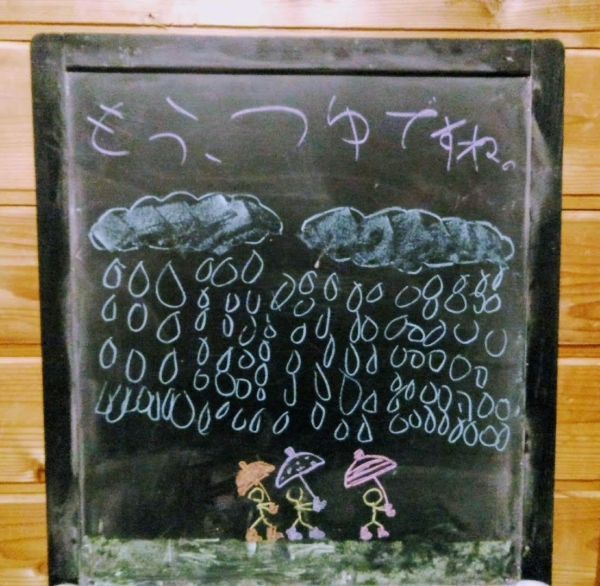 もう、つゆですね。